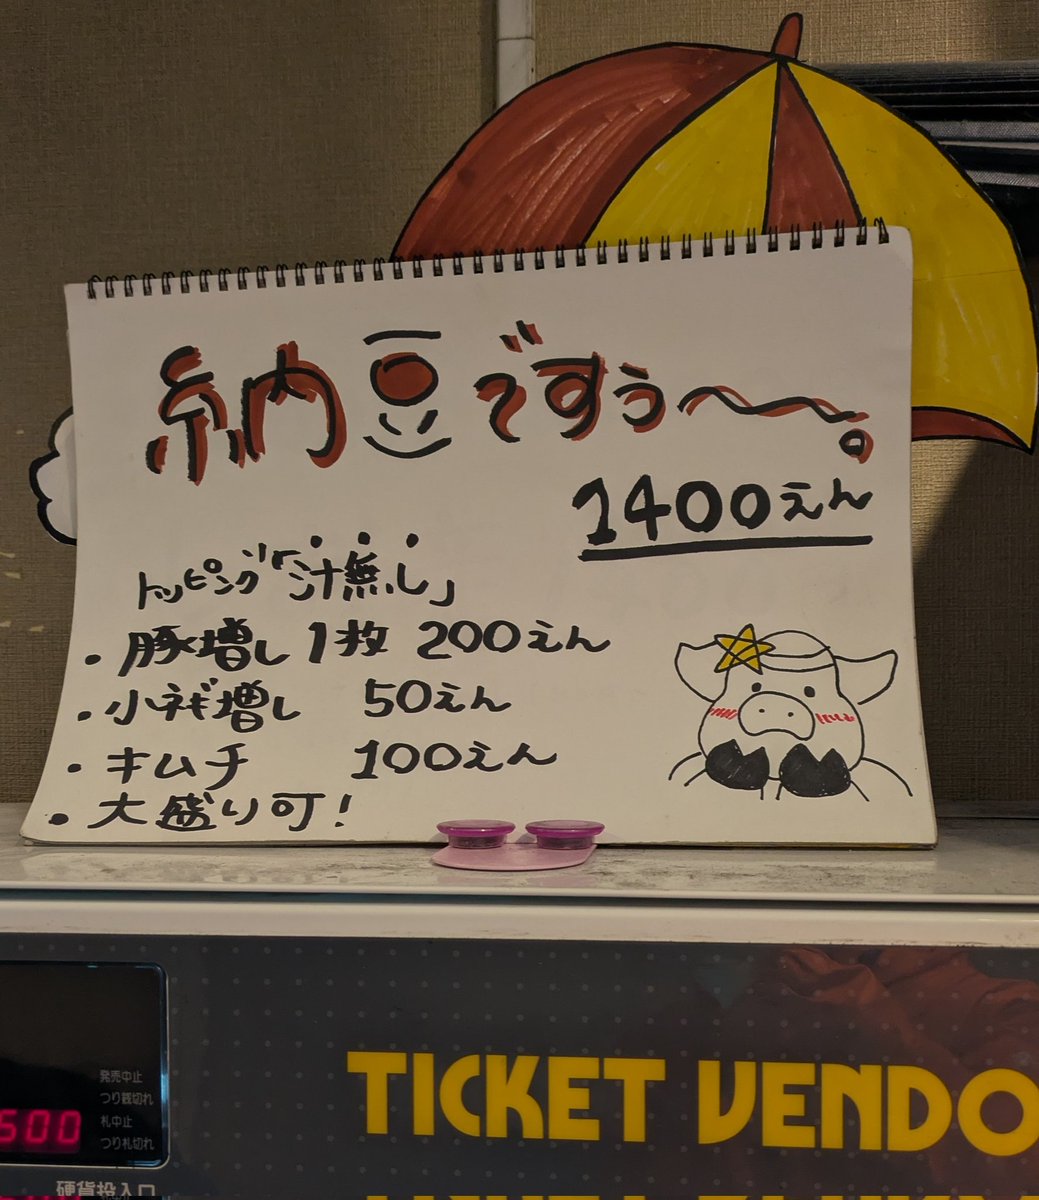 納豆ですぅ〜。
1400えん
トッピング「汁無し」
・豚増し 1枚 200えん
・小ネギ増し 50えん
・キムチ 100えん
・大盛り可!
発売中止
つり銭切れ
札中止
つり札切れ
500
硬貨投入口
TICKET VENDO